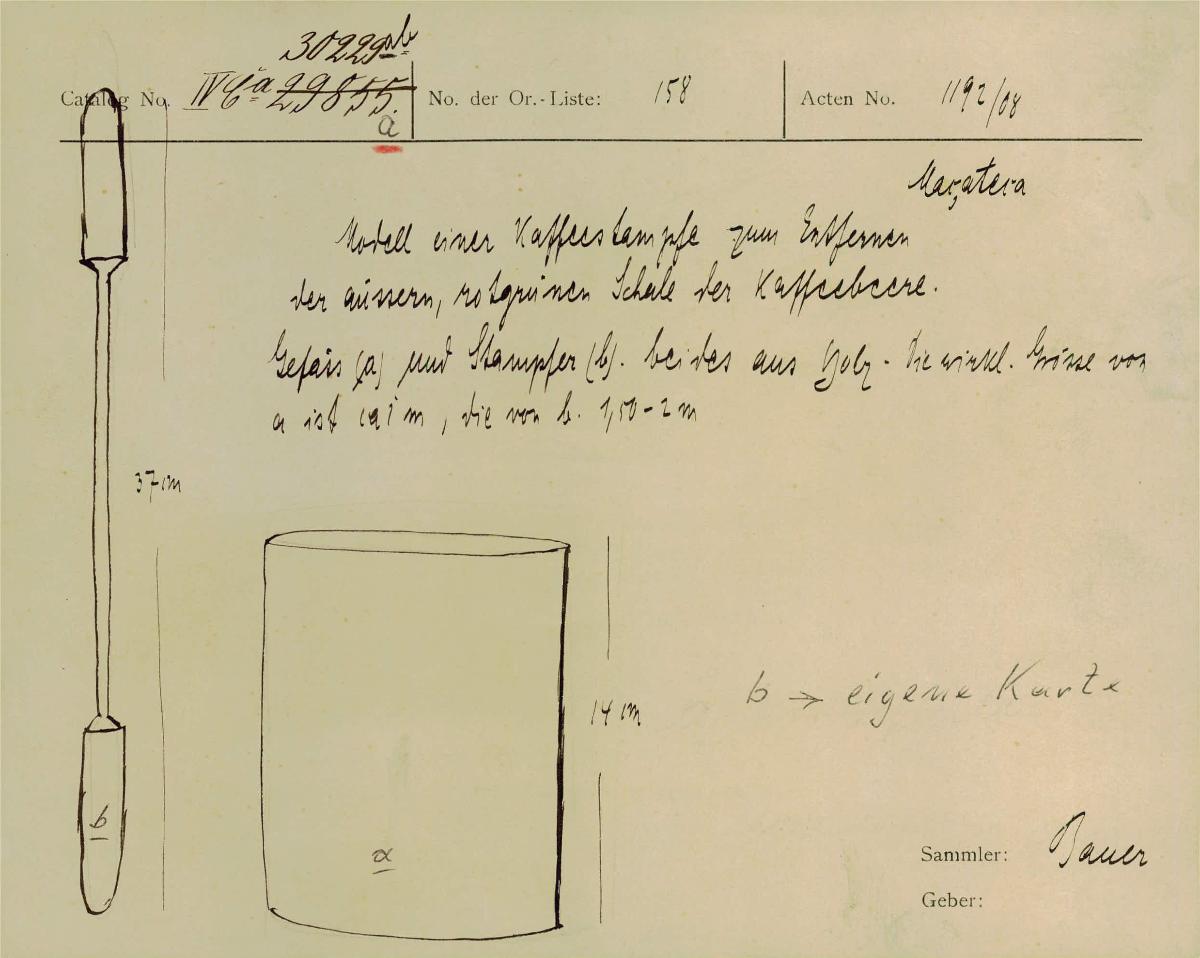 30229ab
Catalog No. IV Ca 29855. No. der Or.-Liste: 158 Acten No. 1192/08
a
Maçateca
Modell einer Kaffeestampfe zum Entfernen
der äussern, rotgrünen Schale der Kaffeebeere.
Gefäss (a) und Stampfer (b). beides aus Holz - Die wirkl. Grösse von
a ist ca 1 m, die von b. 1,50-2 m
37 cm
14 cm
b → eigene Karte
b
a
Sammler: Bauer
Geber: